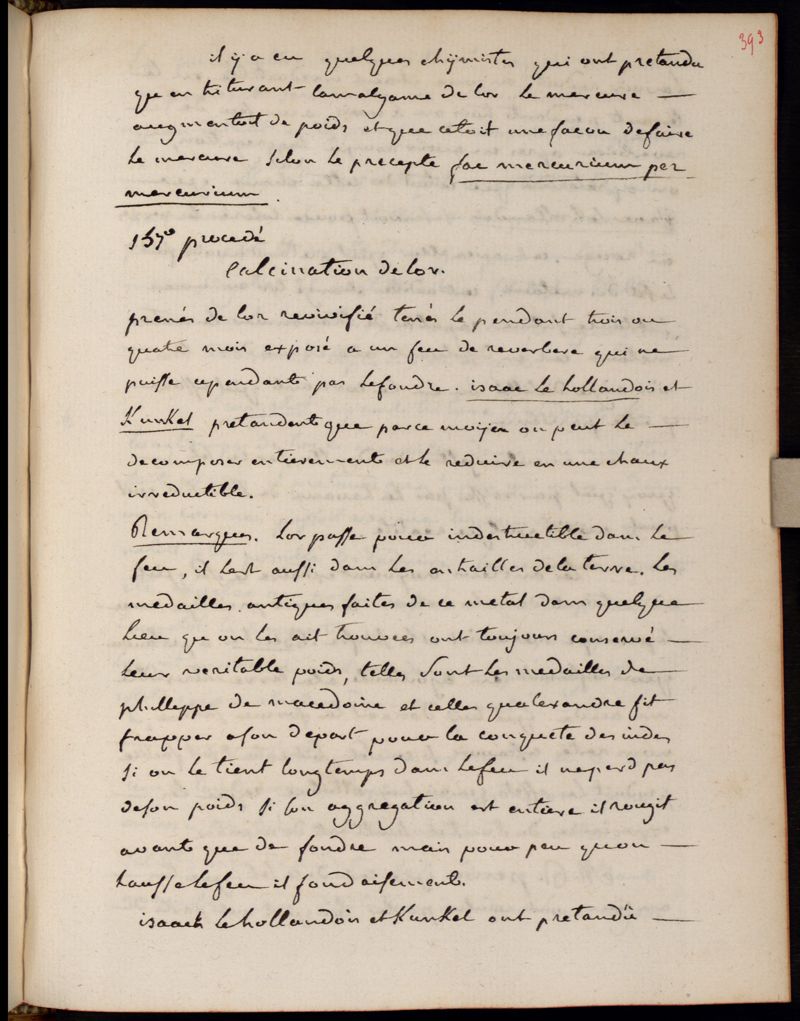 393
il y a eu quelques chymistes qui ont pretandu
que en triturant lamalgame de lor le mercure —
augmentoit de poids et que cetoit une facon de faire
le mercure selon le precepte fac mercurium per
mercurium.
157e procedé
Calcination de lor.
prenés de lor revivifié tenés le pendant trois ou
quatre mois exposé a un feu de reverbere qui ne
puisse cependant pas le fondre. isaac le hollandois et
Kunkel pretandent que par ce moyen on peut le —
decomposer entierement et le reduire en une chaux
irreductible.
Remarques. Lor passe pour indestructible dans le
feu, il lest aussi dans les entrailles de la terre. les
medailles antiques faites de ce metal dans quelque
lieu qu on les ait trouvées ont toujours conservé —
leur veritable poids, telles sont les medailles de
phileppe de macedoine et celles qualexandre fit
frapper a son depart pour la conquete des indes
si on le tient longtemps dans le feu il ne perd pas
de son poids si son aggregation est entiere il rougit
avant que de fondre mais pour peu quon —
hausse le feu il fond aisement.
isaack le hollandois et Kunkel ont pretandü —